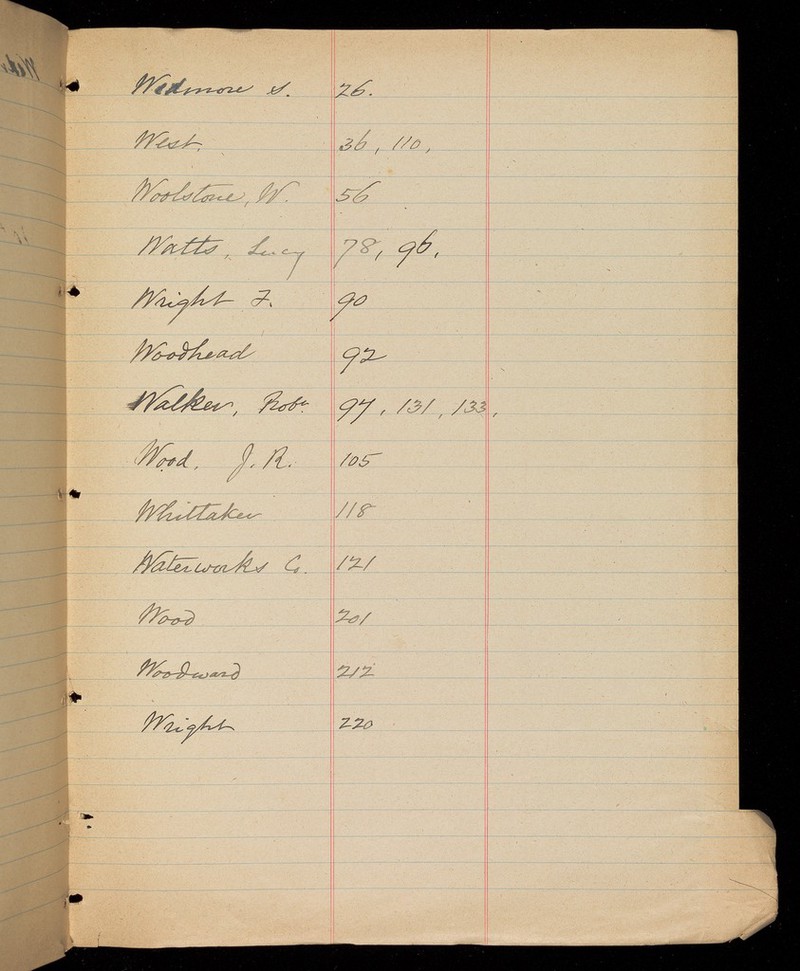 Wedmore S. 26.
West. 36, 110,
Woolstone, W. 56
Watts, Lucy 78, 96,
Wright F. 90
Woodhead 92
Walker, Robt. 97, 131, 133,
Wood, J. R. 105
Whittaker 118
Waterworks Co. 121
Wood 201
Woodward 212
Wright 220